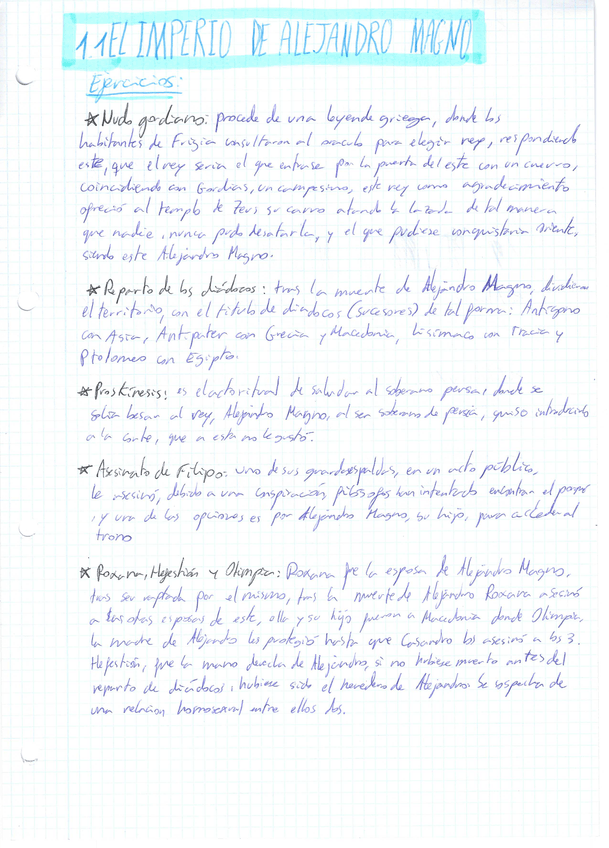 1.1 EL IMPERIO DE ALEJANDRO MAGNO
Ejercicios:
* Nudo gordiano: procede de una leyenda griega, donde los
habitantes de Frigia consultaron al oraculo para elegir rey, respondiendo
este, que el rey seria el que entrase por la puerta del este con un cuervo,
coincidiendo con Gordias, un campesino, este rey como agradecimiento
ofreció al templo de Zeus su carro atando la lazada de tal manera
que nadie, nunca pudo desatarla, y el que pudiese conquistaria oriente,
siendo este Alejandro Magno.
* Reparto de los diádocos: tras la muerte de Alejandro Magno, dividieron
el territorio, con el titulo de diadocos (sucesores) de tal forma: Antigono
con Asia, Antipater con Grecia y Macedonia, Lisimaco con Tracia y
Ptolomeo con Egipto.
* Proskinesis: es el acto ritual de saludar al soberano persa, donde se
solia besar al rey, Alejandro Magno, al ser soberano de persia, quiso introducirlo
a la corte, que a esta no le gustó.
* Asesinato de Filipo: uno de sus guardaespaldas, en un acto público,
le asesinó, debido a una conspiración, filósofos han intentado encontrar el porqué
, y una de las opciones es por Alejandro Magno, su hijo, para acceder al
trono
* Roxana, Hefestión y Olimpia: Roxana fue la esposa de Alejandro Magno,
tras ser raptada por el mismo, tras la muerte de Alejandro Roxana asesinó
a las otras esposas de este, ella y su hijo fueron a Macedonia donde Olimpia,
la madre de Alejandro les protegió hasta que Casandro los asesinó a los 3.
Hefestión, fue la mano derecha de Alejandro, si no hubiese muerto antes del
reparto de diádocos, hubiese sido el heredero de Alejandro. Se sospecha de
una relacion homosexual entre ellos dos.